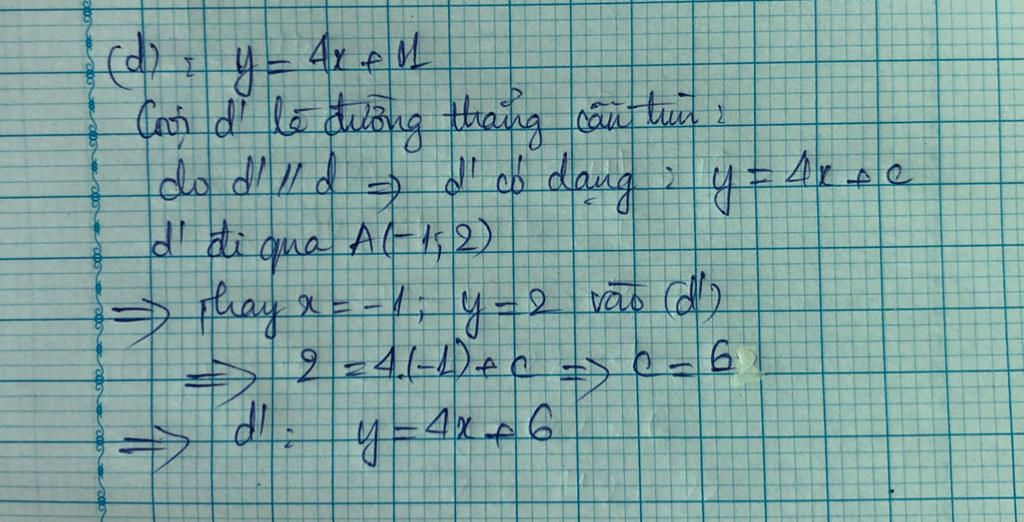 (d) : y = 4x + 1
Gọi d' là đường thẳng cần tìm :
do d' // d => d' có dạng : y = 4x + c
d' đi qua A(-1; 2)
=> thay x = -1; y = 2 vào (d')
=> 2 = 4.(-1) + c => c = 6
=> d' : y = 4x + 6